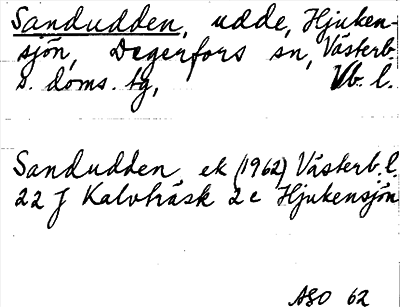 Sandudden, udde, Hjuken-
sjön, Degerfors sn, Västerb.
s. doms. tg, Vb. l.
Sandudden, ek (1962) Västerb. l.
22 J Kalvträsk 2 c Hjukensjön
ASO 62